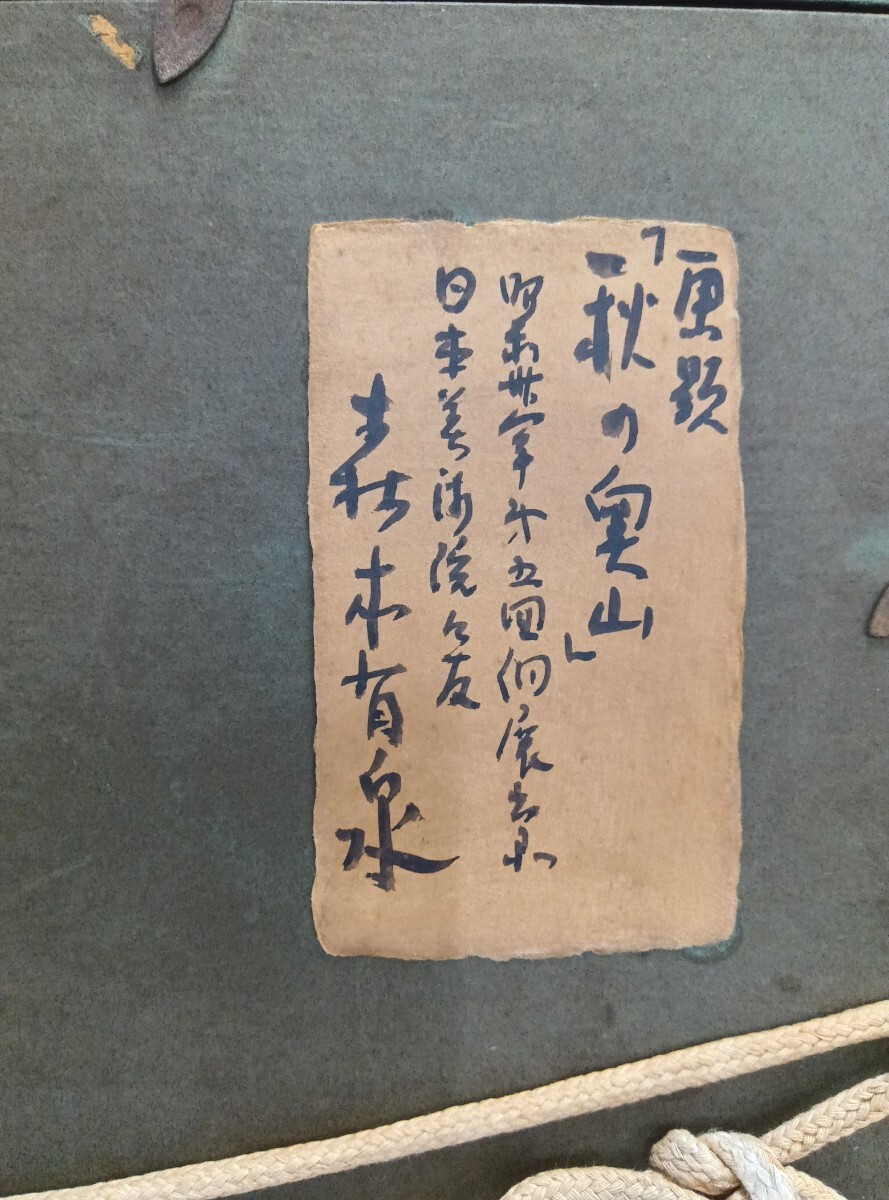 原題
「秋の奥山」
昭和卅年第五回個展出品
日本美術院々友
森本有泉